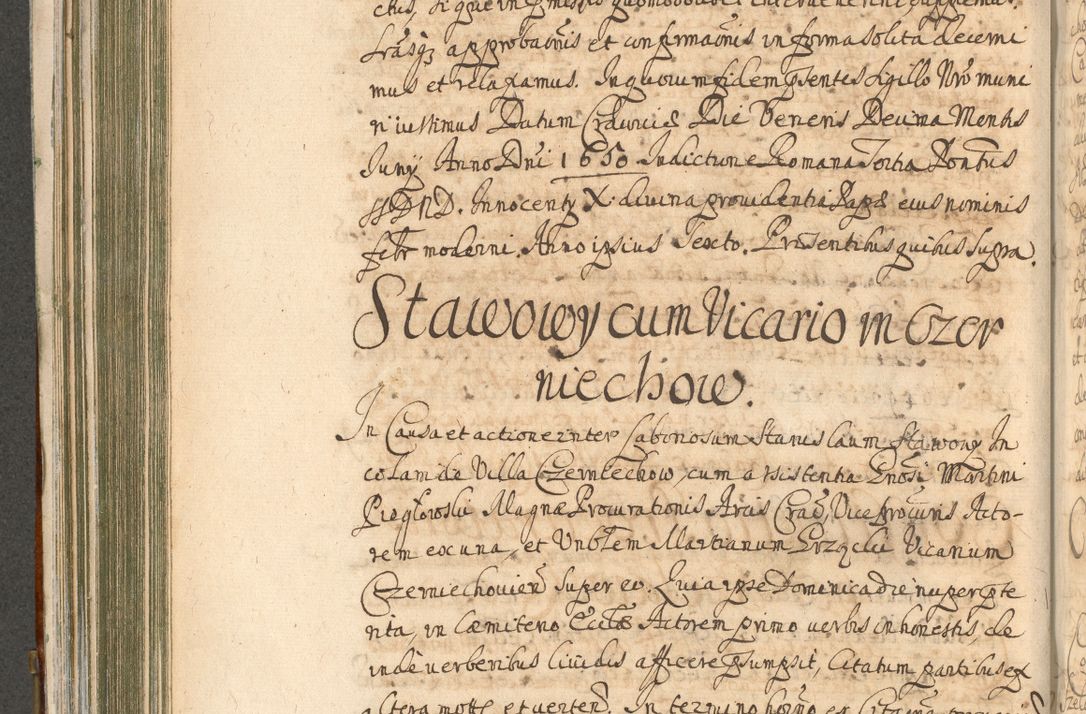 ctus, si que in præmissis quomodolibet intervenerint supplemus.
Lrãsq3 approbaõnis et confirmaõnis in forma solita decerni
mus et relaxamus. In quorum fidem præsentes Sigillo Nrõ muni
ri iussimus Datum Cracoviæ Die Veneris Decima Mensis
Juny Anno Dni 1650 Indictione Romana Tertia Pontus
SSDND. Innocenty X. divina providentia Papæ eius nominis
felr moderni. Anno ipsius Sexto. Præsentibus quibus supra.
Stawowy cum Vicario in Czer
niechow.
In Causa et actione inter Laboriosum Stanislaum Stawowy In
colam de Villa Czerniechow, cum assistentia Gnosi Martini
Pregłowski Magnæ Procurationis Arcis Crac, Viceprocuris Acto-
rem ex una, et Unblem Martianum Grzącki Vicarium
Czerniechovien super eo. Quia ipse Dominica die nuper præte
rita, in Cæmiterio Eccliæ Actorem primo verbis inhonestis, de
inde verberibus lividis afficere præsumpsit, Citatum partibus ex
altera motte et verten. In termino horno ex Citaõne